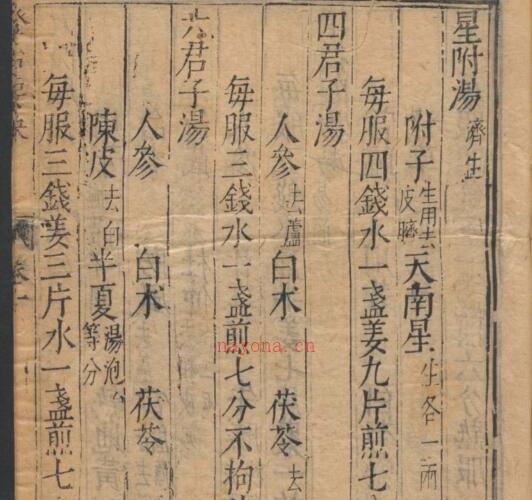 星附湯 濟生
附子 生用去皮臍 天南星 生各一兩
每服四錢水一盞姜九片煎七
四君子湯
人參 去蘆 白术 茯苓 去
每服三錢水一盞煎七分不拘
六君子湯
人參 白术 茯苓
陳皮 去白 半夏 湯泡 等分
每服三錢姜三片水一盞煎七
卷一
nayona.cn